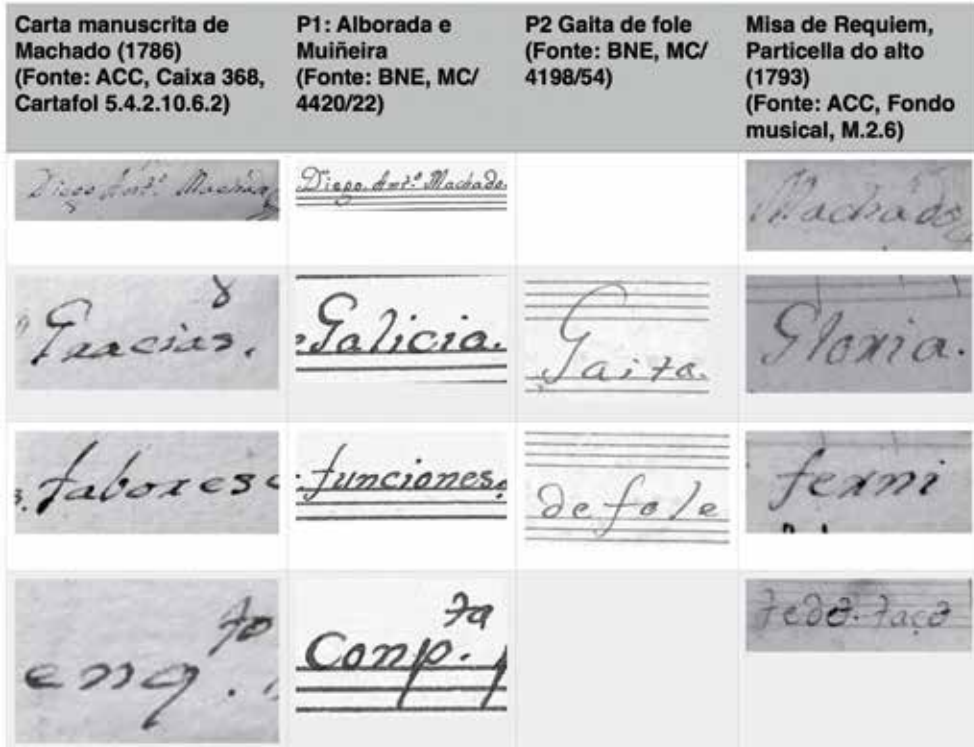 Carta manuscrita de
Machado (1786)
(Fonte: ACC, Caixa 368,
Cartafol 5.4.2.10.6.2)
P1: Alborada e
Muiñeira
(Fonte: BNE, MC/
4420/22)
P2 Gaita de fole
(Fonte: BNE, MC/
4198/54)
Misa de Requiem,
Particella do alto
(1793)
(Fonte: ACC, Fondo
musical, M.2.6)
Diego Ant.º Machado
Diego Ant.º Machado.
Machado
Gracias.
Galicia.
Gaita.
Gloria.
fabores
funciones.
de fole
fermi
enq.to
Conp.ta